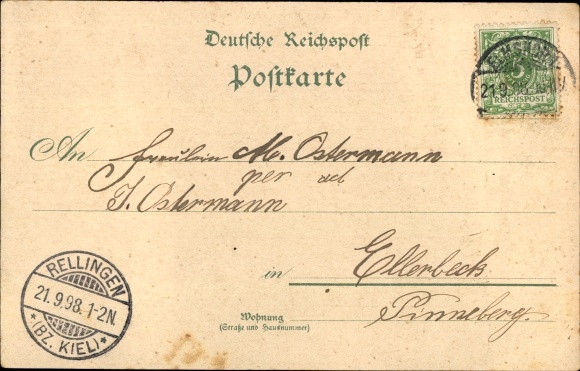 Deutsche Reichspost
Postkarte
5
21.9.98
REICHSPOST
An Fräulein M. Ostermann
per ad
J. Ostermann
in Ellerbeck
Pinneberg.
Wohnung
(Straße und Hausnummer)
RELLINGEN
21.9.98. 1-2N.
* (BZ. KIEL) *